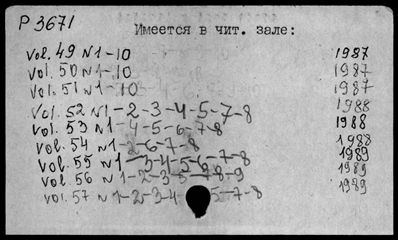 P 3671
Имеется в чит. зале:
Vol. 49 N1-10 1987
Vol. 50 N1-10 1987
Vol. 51 N1-10 1987
Vol. 52 N1-2-3-4-5-7-8 1988
Vol. 53 N1-4-5-6-7-8 1988
Vol. 54 N1-2-6-7-8 1988
Vol. 55 N1-3-4-5-6-7-8 1989
Vol. 56 N1-2-3-5-7-8-9 1989
Vol. 57 N1-2-3-4 5-7-8 1989